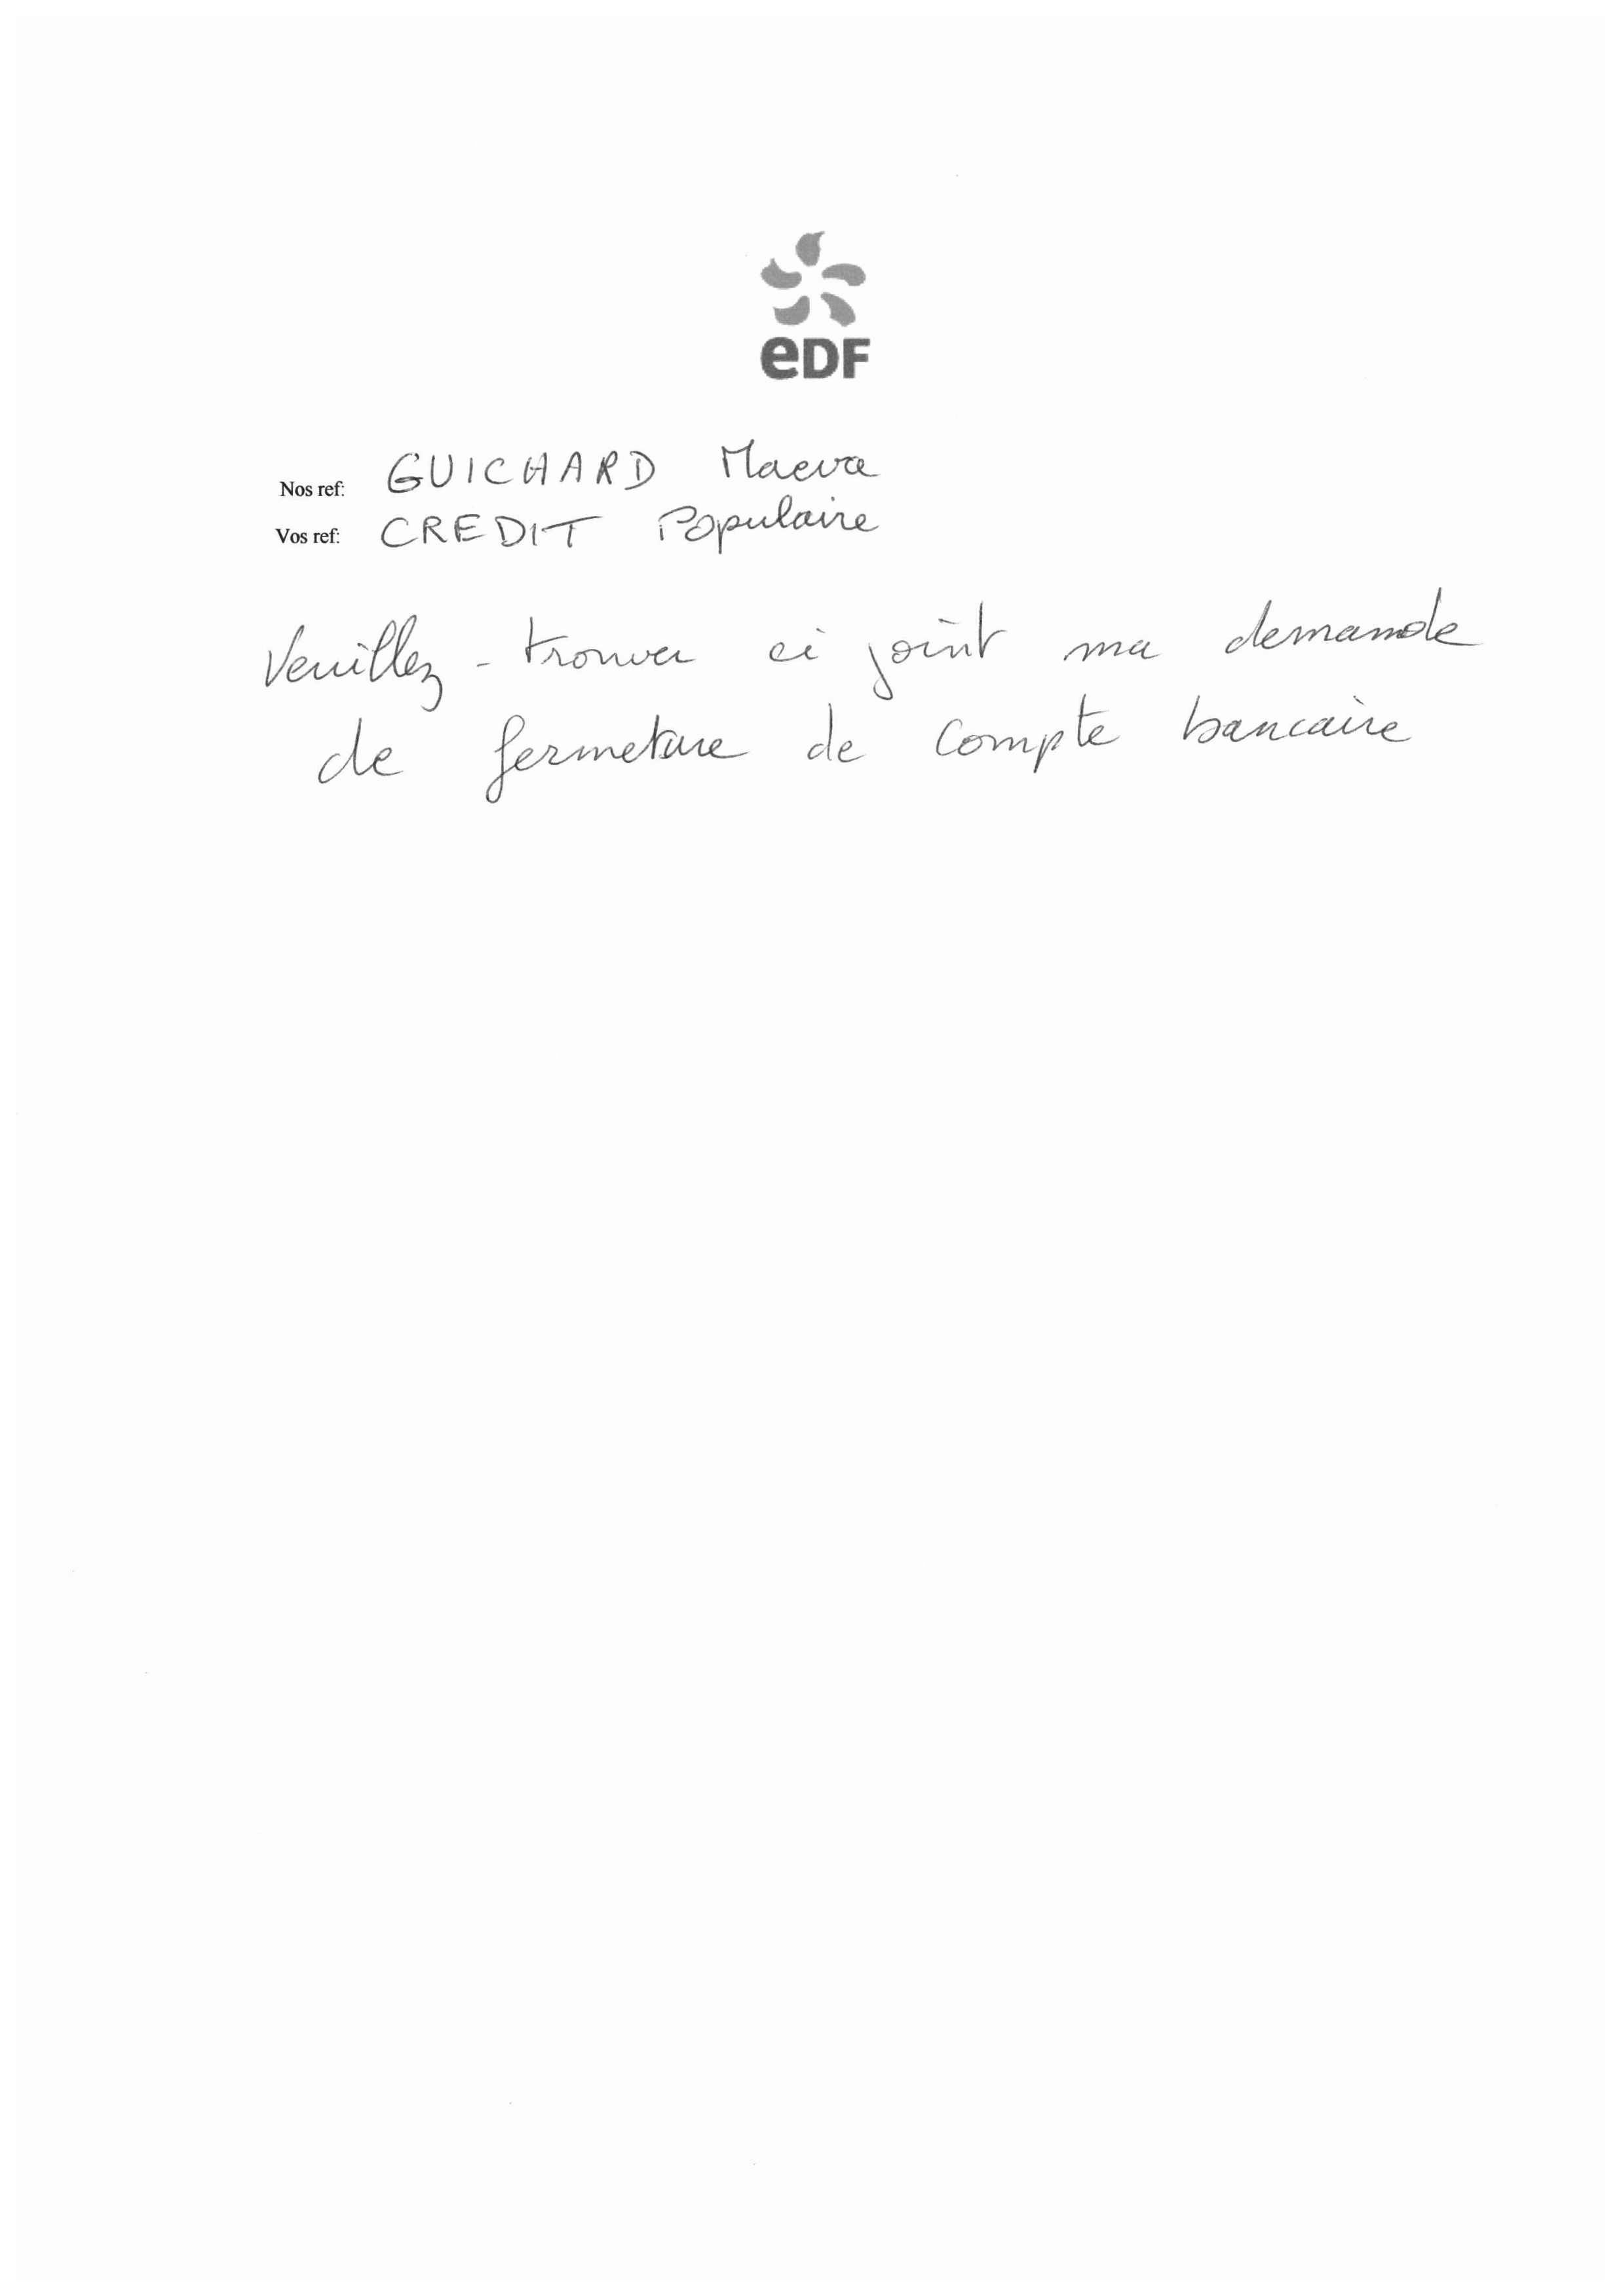 eDF
Nos ref: GUICHARD Maeva
Vos ref: CREDIT Populaire
Veuillez - trouver ci joint ma demande
de fermeture de compte bancaire